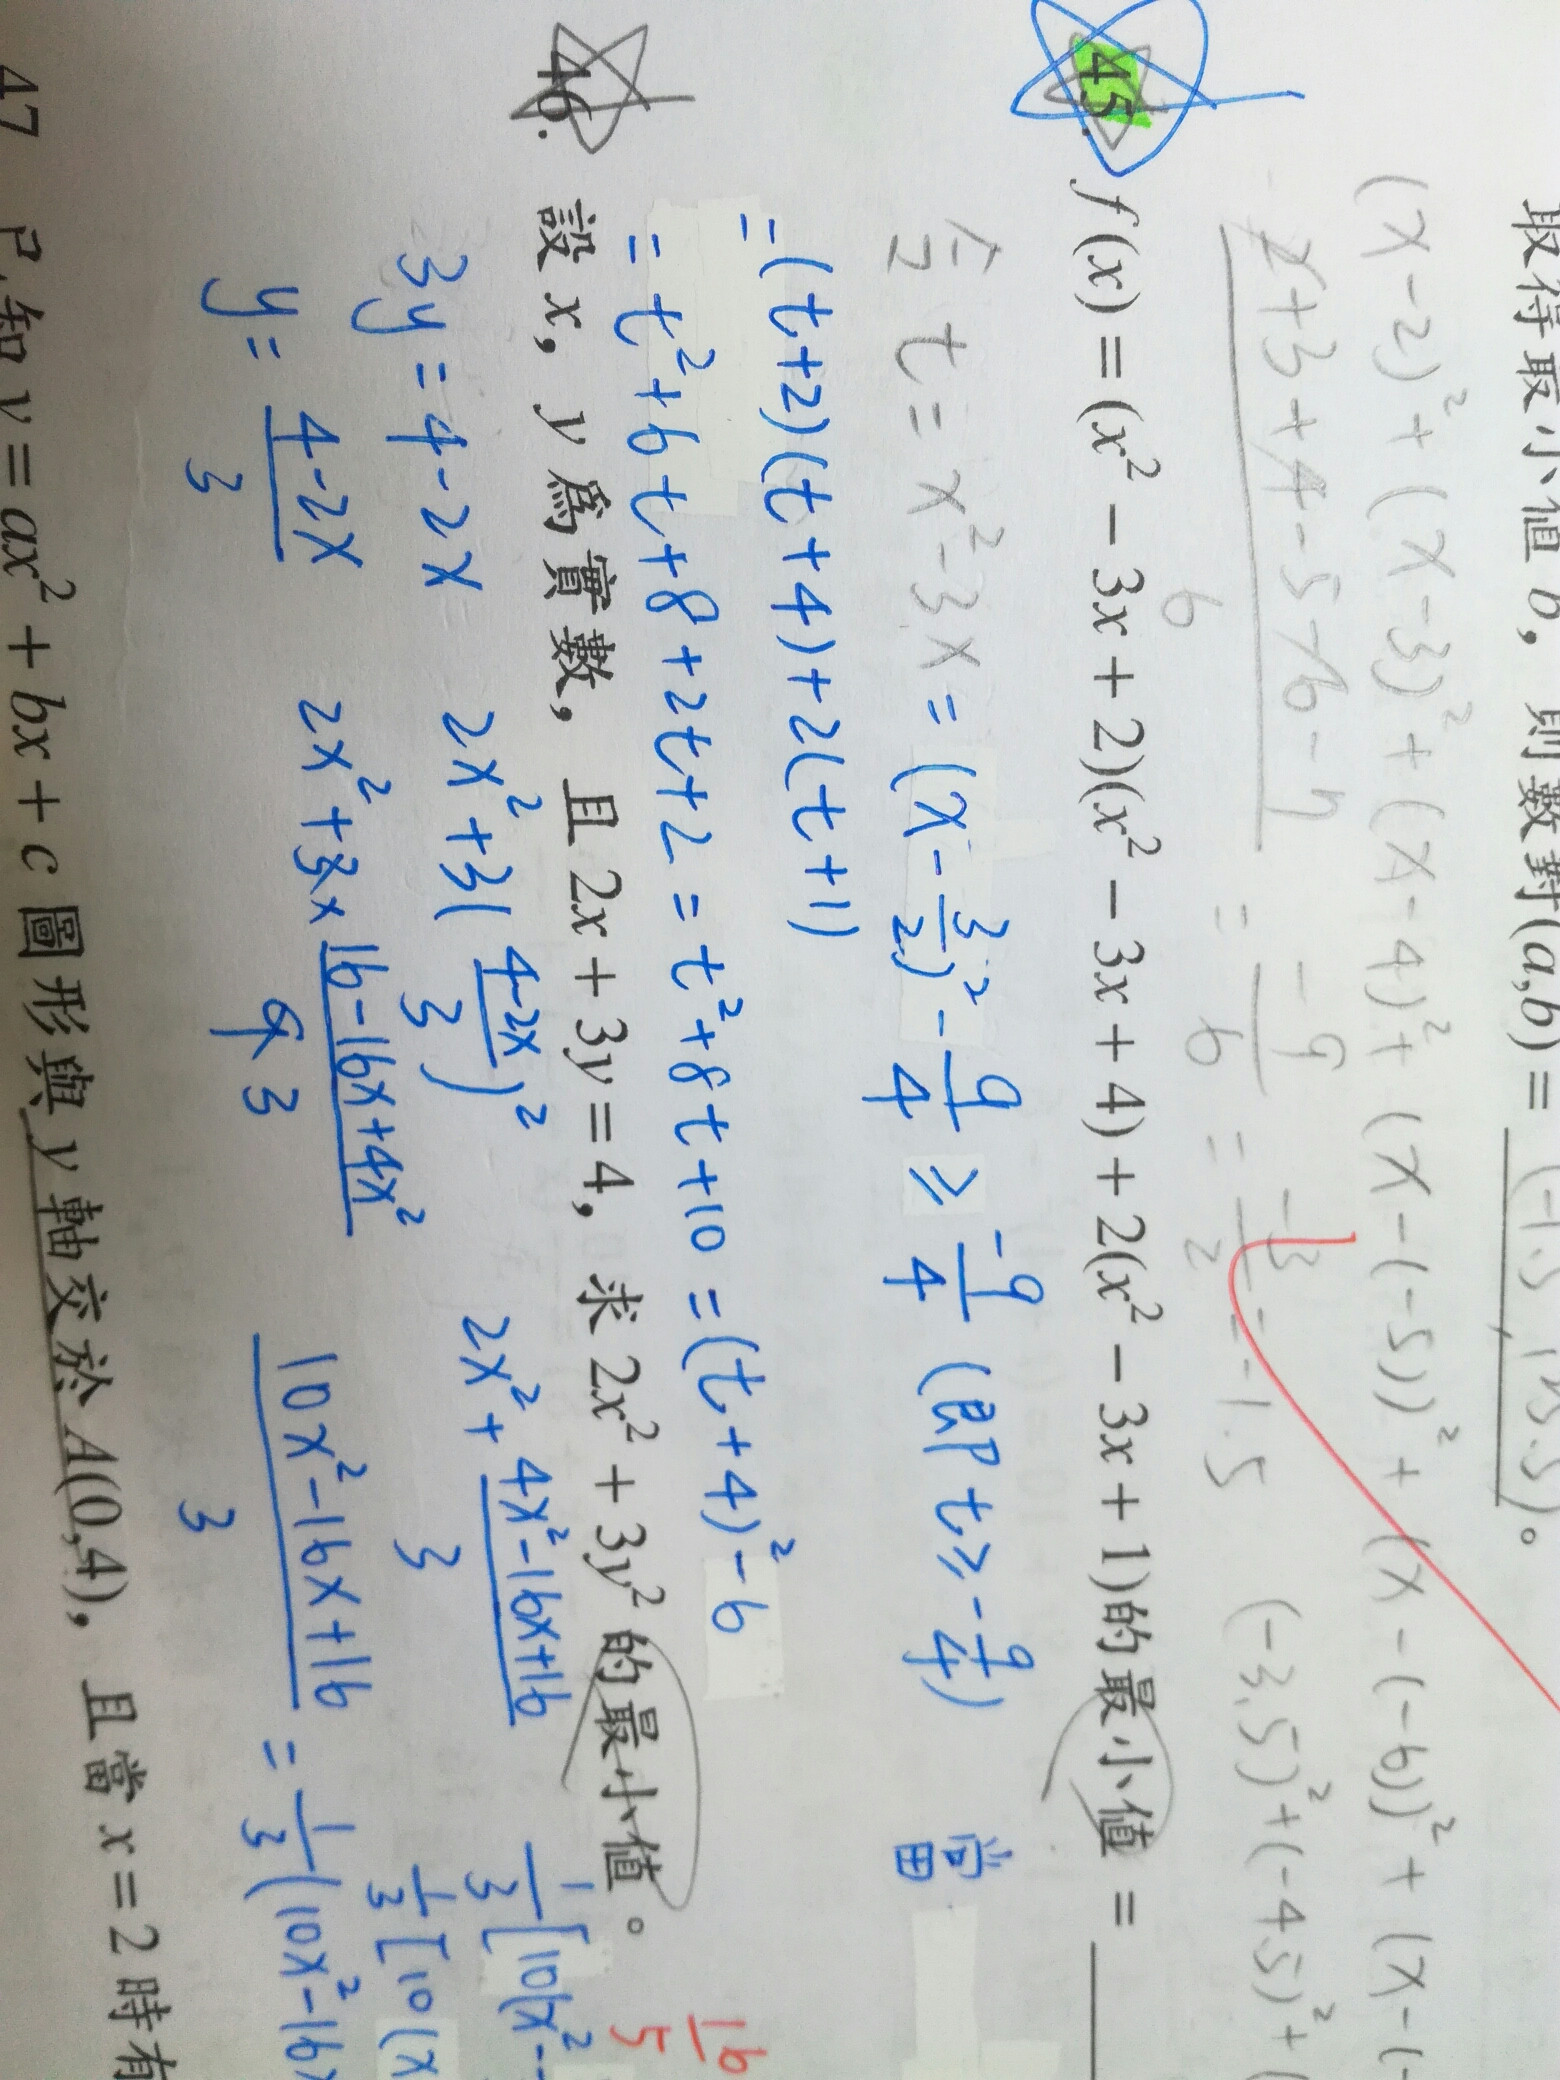 取得最小值 b，則數對(a,b) = (-1.5, 123.5)。
(x-2)² + (x-3)² + (x-4)² + (x-(-5))² + (x-(-6))² + (x-(-
6
= -9/6 = -3/2 = -1.5 (-3.5)² + (-4.5)² + (
45. f(x) = (x² - 3x + 2)(x² - 3x + 4) + 2(x² - 3x + 1)的最小值 = ______
令 t = x² - 3x = (x - 3/2)² - 9/4 ≥ -9/4 (即 t ≥ -9/4) 當
= (t+2)(t+4) + 2(t+1)
= t² + 6t + 8 + 2t + 2 = t² + 8t + 10 = (t+4)² - 6
46. 設 x，y 為實數，且 2x + 3y = 4，求 2x² + 3y² 的最小值。 16/5
3y = 4 - 2x 2x² + 3(4-2x/3)² 2x² + 4x²-16x+16/3 1/3[10(x² -
1/3[10(x
y = 4-2x/3 2x² + 3 x 16-16x+4x²/9 3 10x²-16x+16/3 = 1/3(10x²-16x
47 已知 y = ax² + bx + c 圖形與 y 軸交於 A(0,4)，且當 x = 2 時有